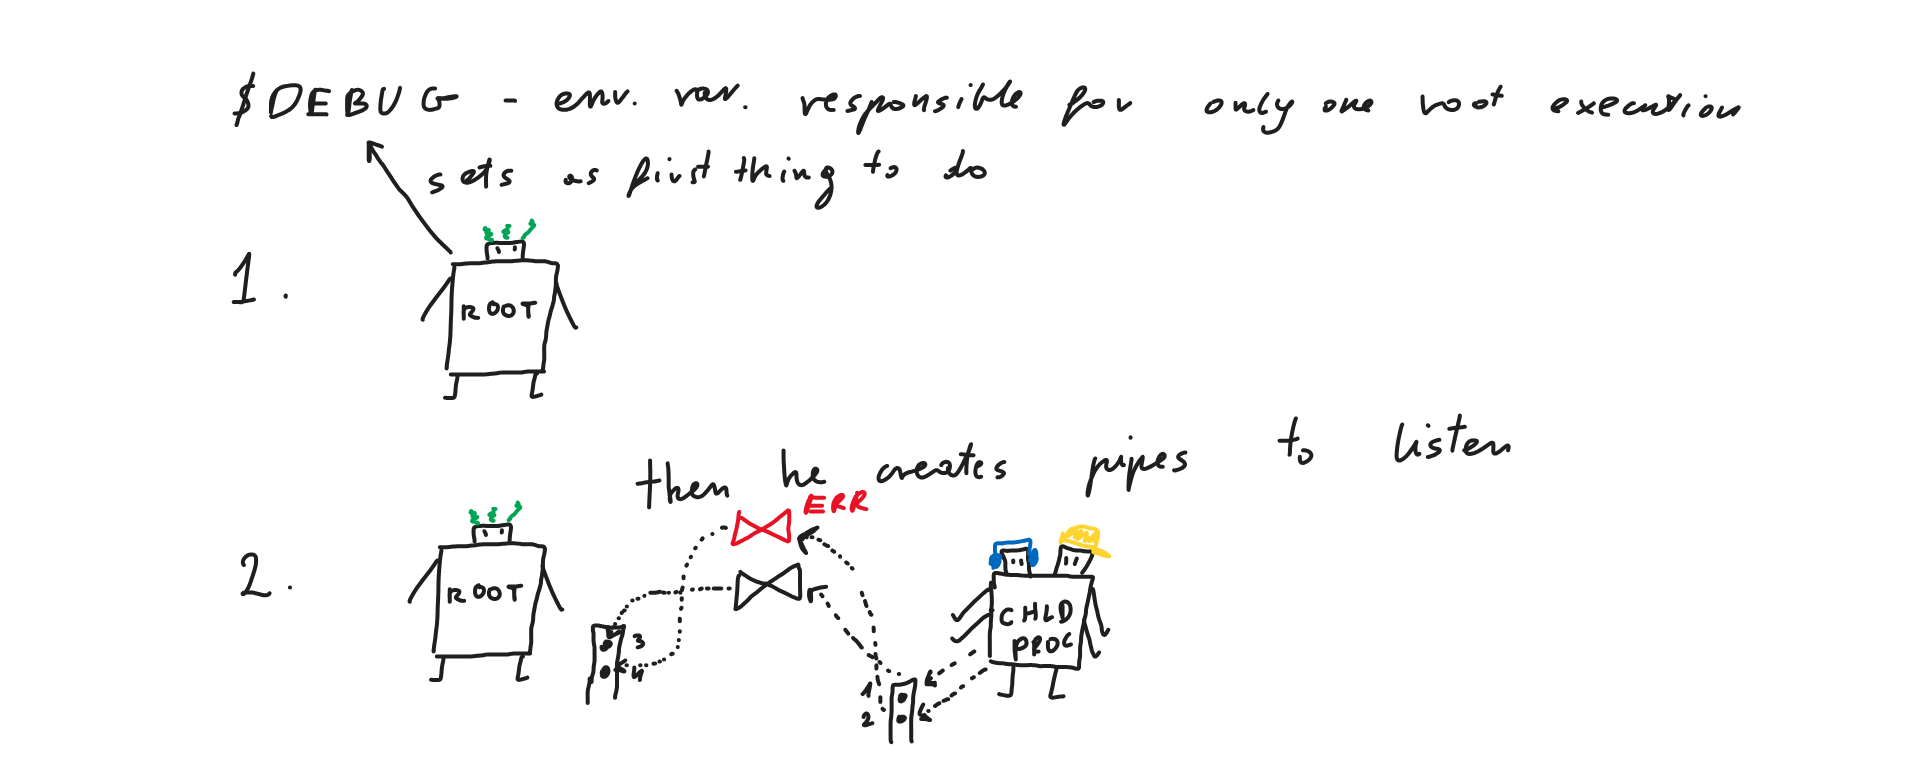 $DEBUG - env. var. responsible for only one root execution
sets as first thing to do
1.
ROOT
then he creates pipes to listen
ERR
2.
ROOT
3
4
CHLD
PROC
1
2